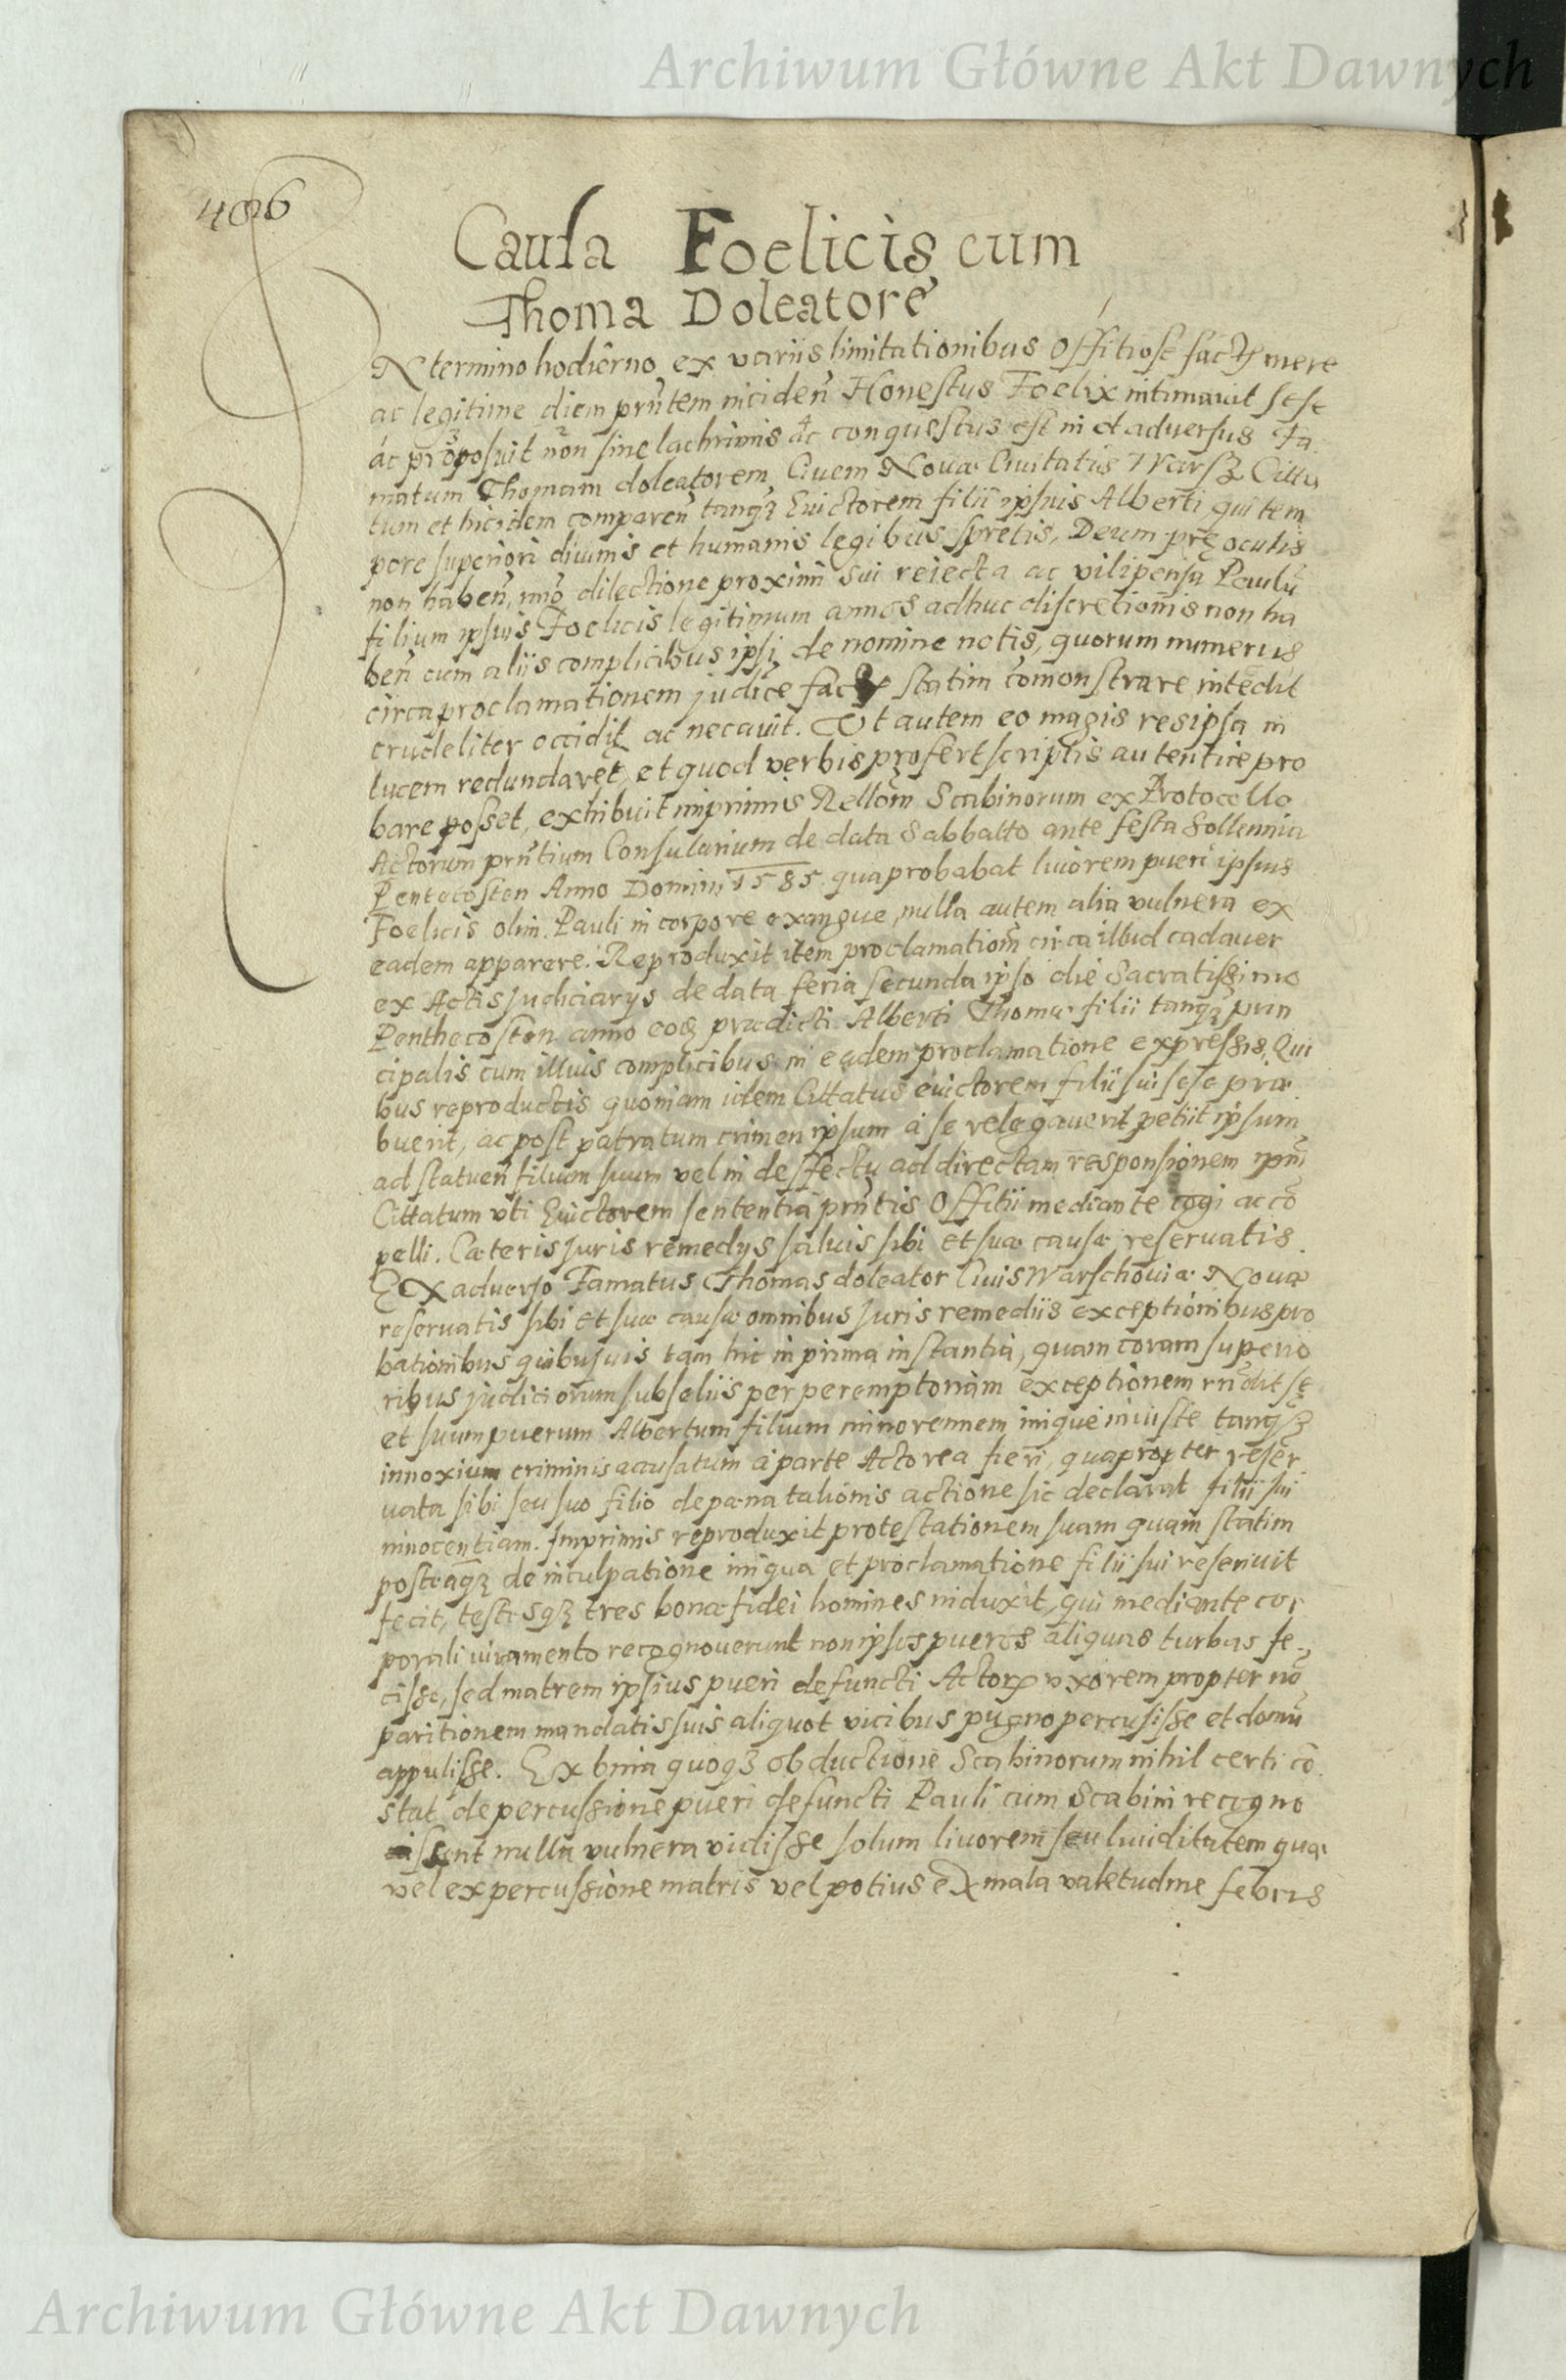 Archiwum Główne Akt Dawnych
406
Causa Foelicis cum
Thoma Doleatore
N termino hodierno ex variis limitationibus Offitiose fact mere
ac legitime diem prñtem inciden̄ Honestus Foelix intimavit sese
ac proposuit non sine lachrimis ac conquestus est in et adversus Fa
matum Thomam doleatorem Civem Novæ Civitatis Warsz Citta
tum et hicidem comparen̄ tanqȝ Evictorem filii ipsius Alberti qui tem
pore superiori divinis et humanis legibus spretis, Deum pre oculis
non haben̄, imo dilectione proximi sui reiecta ac vilipensa Paulū
filium ipsius Foelicis legitimum annos adhuc discretionis non ha
ben̄ cum aliis complicibus ipsi de nomine notis, quorum numerus
circa proclamationem judice fact statim comonstrare intēdit
crudeliter occidit ac necavit. Ut autem eo magis res ipsa in
lucem redundaret, et quod verbis profert scriptis autentice pro
bare posset, exhibuit imprimis Rellōm Scabinorum ex Protocollo
Actorum prñtium Consularium de data Sabbatto ante festa Sollennia
Pentecosten Anno Domini 1585 qua probabat livorem pueri ipsius
Foelicis olim Pauli in corpore exangue, nulla autem alia vulnera ex
eadem apparere. Reproduxit item proclamationē circa illud cadaver
ex Actis Judiciarys de data feria secunda ipso die Sacratissimo
Penthecosten anno eoȝ prædicti Alberti Thomæ filii tanqȝ prin
cipalis cum illius complicibus in eadem proclamatione expressis, Qui
bus reproductis quoniam idem Cittatus evictorem filii sui sese præ
buerit, ac post patratum crimen ipsum à se relegaverit petiit ipsum
ad statuen̄ filium suum vel in deffectu ad directam responsionem ipm̄
Cittatum uti Evictorem sententia prñtis Offitii mediante cogi ac cō
pelli. Cæteris Juris remedys salvis sibi et suæ causæ reservatis.
Ex adverso Famatus Thomas doleator Civis Warschoviæ Novæ
reservatis sibi et suæ causæ omnibus Juris remediis exceptionibus pro
bationibus quibusvis tam hic in prima instantia, quam coram superio
ribus judiciorum subseliis per peremptoriam exceptionem rndit se
et suum puerum Albertum filium minorennem inique iniuste tanqȝ
innoxium criminis accusatum à parte Actorea fieri, quapropter reser
vata sibi seu suo filio de pæna talionis actione sic declarat filii sui
innocentiam. Imprimis reproduxit protestationem suam quam statim
posteaqȝ de inculpatione iniqua et proclamatione filii sui resciuit
fecit, testesqȝ tres bonæ fidei homines induxit, qui mediante cor
porali iuramento recognoverunt non ipsos pueros aliquas turbas fe
cisse, sed matrem ipsius pueri defuncti Actoris uxorem propter nō
paritionem mandatis suis aliquot vicibus pugno percusisse et domū
appulisse. Ex bina quoqȝ obductione Scabinorum nihil certi cō
stat de percussione pueri defuncti Pauli cum Scabini recogno
issent nulla vulnera vidisse solum livorem seu lividitatem quæ
vel ex percussione matris vel potius ex mala valetudine febris
Archiwum Główne Akt Dawnych